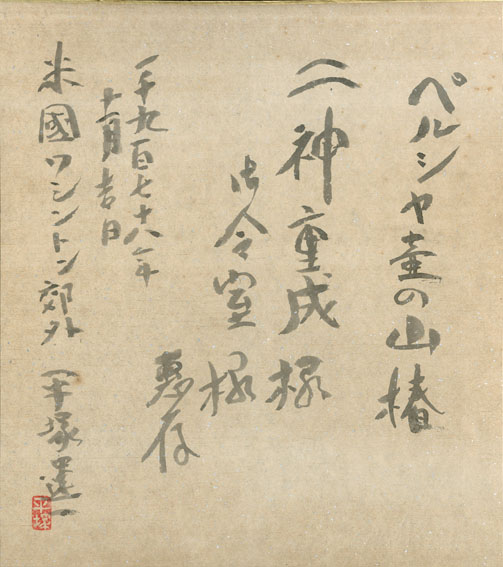 ペルシヤ壺の山椿
二神重成様
御令室様
恵存
一千九百七十八年
十一月吉日
米國ワシントン郊外 平塚運一
平塚